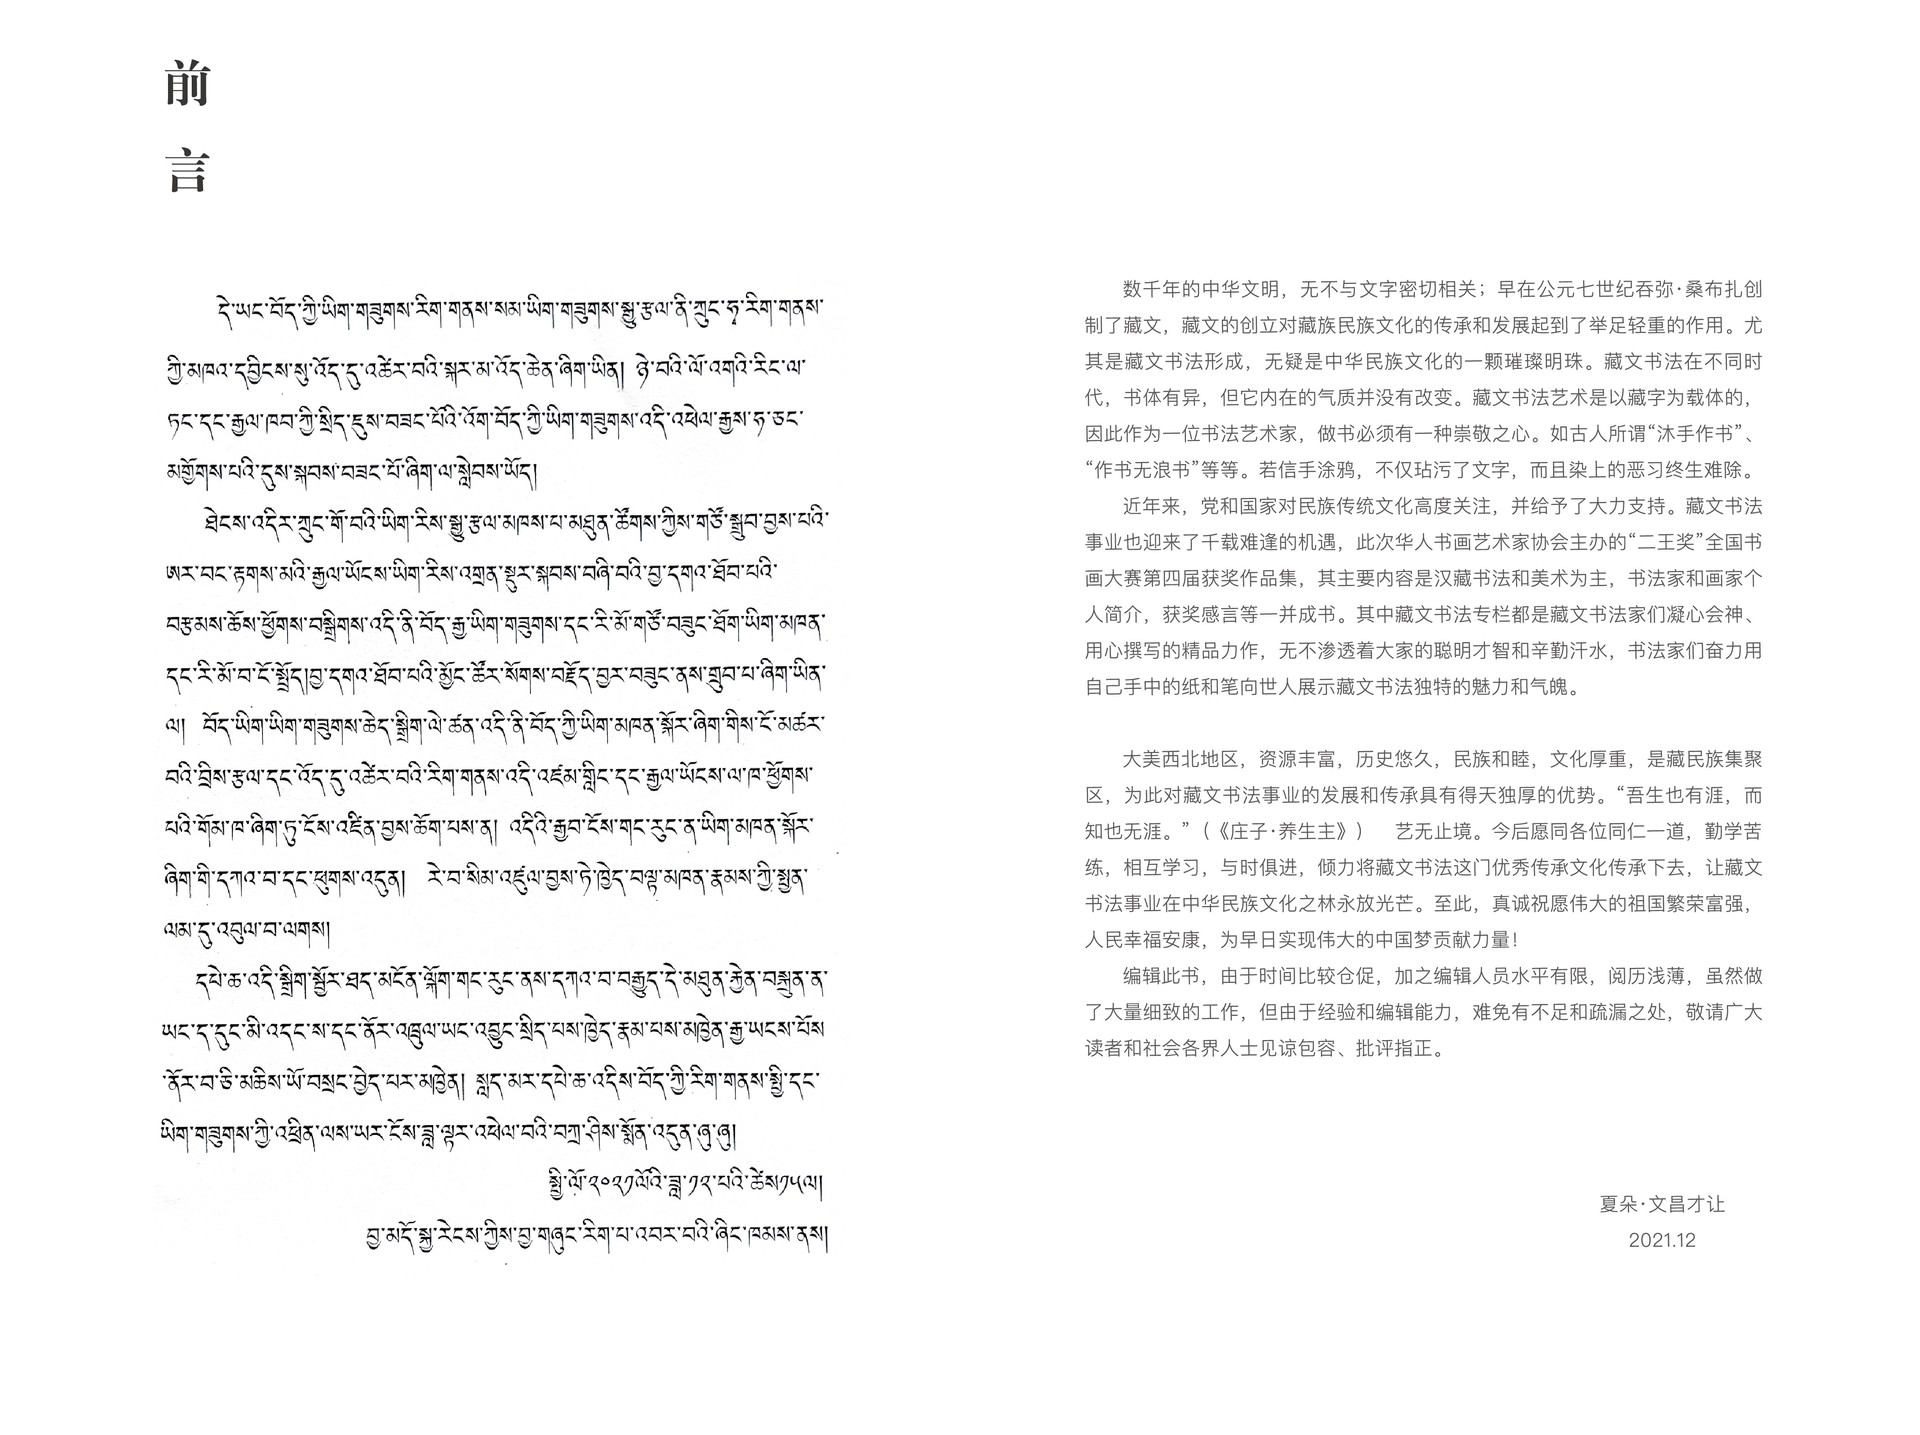 前
言
དེ་ཡང་བོད་ཀྱི་ཡིག་གཟུགས་རིག་གནས་སམ་ཡིག་གཟུགས་སྒྱུ་རྩལ་ནི་ཀྲུང་ཧྭ་རིག་གནས་
ཀྱི་མཁའ་དབྱིངས་སུ་འོད་དུ་འཚེར་བའི་སྐར་མ་འོད་ཆེན་ཞིག་ཡིན། ཉེ་བའི་ལོ་འགའི་རིང་ལ་
ཏང་དང་རྒྱལ་ཁབ་ཀྱི་སྲིད་ཇུས་བཟང་པོའི་འོག་བོད་ཀྱི་ཡིག་གཟུགས་འདི་འཕེལ་རྒྱས་ཧ་ཅང་
མགྱོགས་པའི་དུས་སྐབས་བཟང་པོ་ཞིག་ལ་སླེབས་ཡོད།
ཐེངས་འདིར་ཀྲུང་གོ་བའི་ཡིག་རིས་སྒྱུ་རྩལ་མཁས་པ་མཐུན་ཚོགས་ཀྱིས་གཙོ་སྒྲུབ་བྱས་པའི་
ཨར་བང་རྟགས་མའི་རྒྱལ་ཡོངས་ཡིག་རིས་འགྲན་སྡུར་སྐབས་བཞི་བའི་བྱ་དགའ་ཐོབ་པའི་
བརྩམས་ཆོས་ཕྱོགས་བསྒྲིགས་འདི་ནི་བོད་རྒྱ་ཡིག་གཟུགས་དང་རི་མོ་གཙོ་བཟུང་ཐོག་ཡིག་མཁན་
དང་རི་མོ་བ་ངོ་སྤྲོད།བྱ་དགའ་ཐོབ་པའི་མྱོང་ཚོར་སོགས་བརྗོད་བྱར་བཟུང་ནས་གྲུབ་པ་ཞིག་ཡིན་
ལ། བོད་ཡིག་ཡིག་གཟུགས་ཆེད་སྒྲིག་ལེ་ཚན་འདི་ནི་བོད་ཀྱི་ཡིག་མཁན་སྐོར་ཞིག་གིས་ངོ་མཚར་
བའི་བྲིས་རྩལ་དང་འོད་དུ་འཚེར་བའི་རིག་གནས་འདི་འཛམ་གླིང་དང་རྒྱལ་ཡོངས་ལ་ཁ་ཕྱོགས་
པའི་གོམ་ཁ་ཞིག་ཏུ་ངོས་འཛིན་བྱས་ཆོག་པས་ན། འདིའི་རྒྱབ་ངོས་གང་རུང་ན་ཡིག་མཁན་སྐོར་
ཞིག་གི་དཀའ་བ་དང་ཕུགས་འདུན། རེ་བ་སིམ་འཛུལ་བྱས་ཏེ་ཁྱེད་བལྟ་མཁན་རྣམས་ཀྱི་སྤྱན་
ལམ་དུ་འབུལ་བ་ལགས།
དཔེ་ཆ་འདི་སྒྲིག་སྦྱོར་ཐད་མངོན་ལྐོག་གང་རུང་ནས་དཀའ་བ་བརྒྱུད་དེ་མཐུན་རྐྱེན་བསྐྲུན་ན་
ཡང་ད་དུང་མི་འདང་ས་དང་ནོར་འཁྲུལ་ཡང་འབྱུང་སྲིད་པས་ཁྱེད་རྣམ་པས་མཁྱེན་རྒྱ་ཡངས་པོས
་ནོར་བ་ཅི་མཆིས་ཡོ་བསྲང་བྱེད་པར་མཁྱེན། སླད་མར་དཔེ་ཆ་འདིས་བོད་ཀྱི་རིག་གནས་སྤྱི་དང་
ཡིག་གཟུགས་ཀྱི་འཕྲིན་ལས་ཡར་ངོས་ཟླ་ལྟར་འཕེལ་བའི་བཀྲ་ཤིས་སྨོན་འདུན་ཞུ་ཞུ།
སྤྱི་ལོ་༢༠༢༡ལོའི་ཟླ་༡༢་པའི་ཚེས༡༥ལ།
བྱ་མདོ་སྐྱ་རེངས་ཀྱིས་བྱ་གཞུང་རིག་པ་འབར་བའི་ཞིང་ཁམས་ནས།
数千年的中华文明，无不与文字密切相关；早在公元七世纪吞弥·桑布扎创
制了藏文，藏文的创立对藏族民族文化的传承和发展起到了举足轻重的作用。尤
其是藏文书法形成，无疑是中华民族文化的一颗璀璨明珠。藏文书法在不同时
代，书体有异，但它内在的气质并没有改变。藏文书法艺术是以藏字为载体的，
因此作为一位书法艺术家，做书必须有一种崇敬之心。如古人所谓“沐手作书”、
“作书无浪书”等等。若信手涂鸦，不仅玷污了文字，而且染上的恶习终生难除。
近年来，党和国家对民族传统文化高度关注，并给予了大力支持。藏文书法
事业也迎来了千载难逢的机遇，此次华人书画艺术家协会主办的“二王奖”全国书
画大赛第四届获奖作品集，其主要内容是汉藏书法和美术为主，书法家和画家个
人简介，获奖感言等一并成书。其中藏文书法专栏都是藏文书法家们凝心会神、
用心撰写的精品力作，无不渗透着大家的聪明才智和辛勤汗水，书法家们奋力用
自己手中的纸和笔向世人展示藏文书法独特的魅力和气魄。
大美西北地区，资源丰富，历史悠久，民族和睦，文化厚重，是藏民族集聚
区，为此对藏文书法事业的发展和传承具有得天独厚的优势。“吾生也有涯，而
知也无涯。”（《庄子·养生主》） 艺无止境。今后愿同各位同仁一道，勤学苦
练，相互学习，与时俱进，倾力将藏文书法这门优秀传承文化传承下去，让藏文
书法事业在中华民族文化之林永放光芒。至此，真诚祝愿伟大的祖国繁荣富强，
人民幸福安康，为早日实现伟大的中国梦贡献力量！
编辑此书，由于时间比较仓促，加之编辑人员水平有限，阅历浅薄，虽然做
了大量细致的工作，但由于经验和编辑能力，难免有不足和疏漏之处，敬请广大
读者和社会各界人士见谅包容、批评指正。
夏朵·文昌才让
2021.12